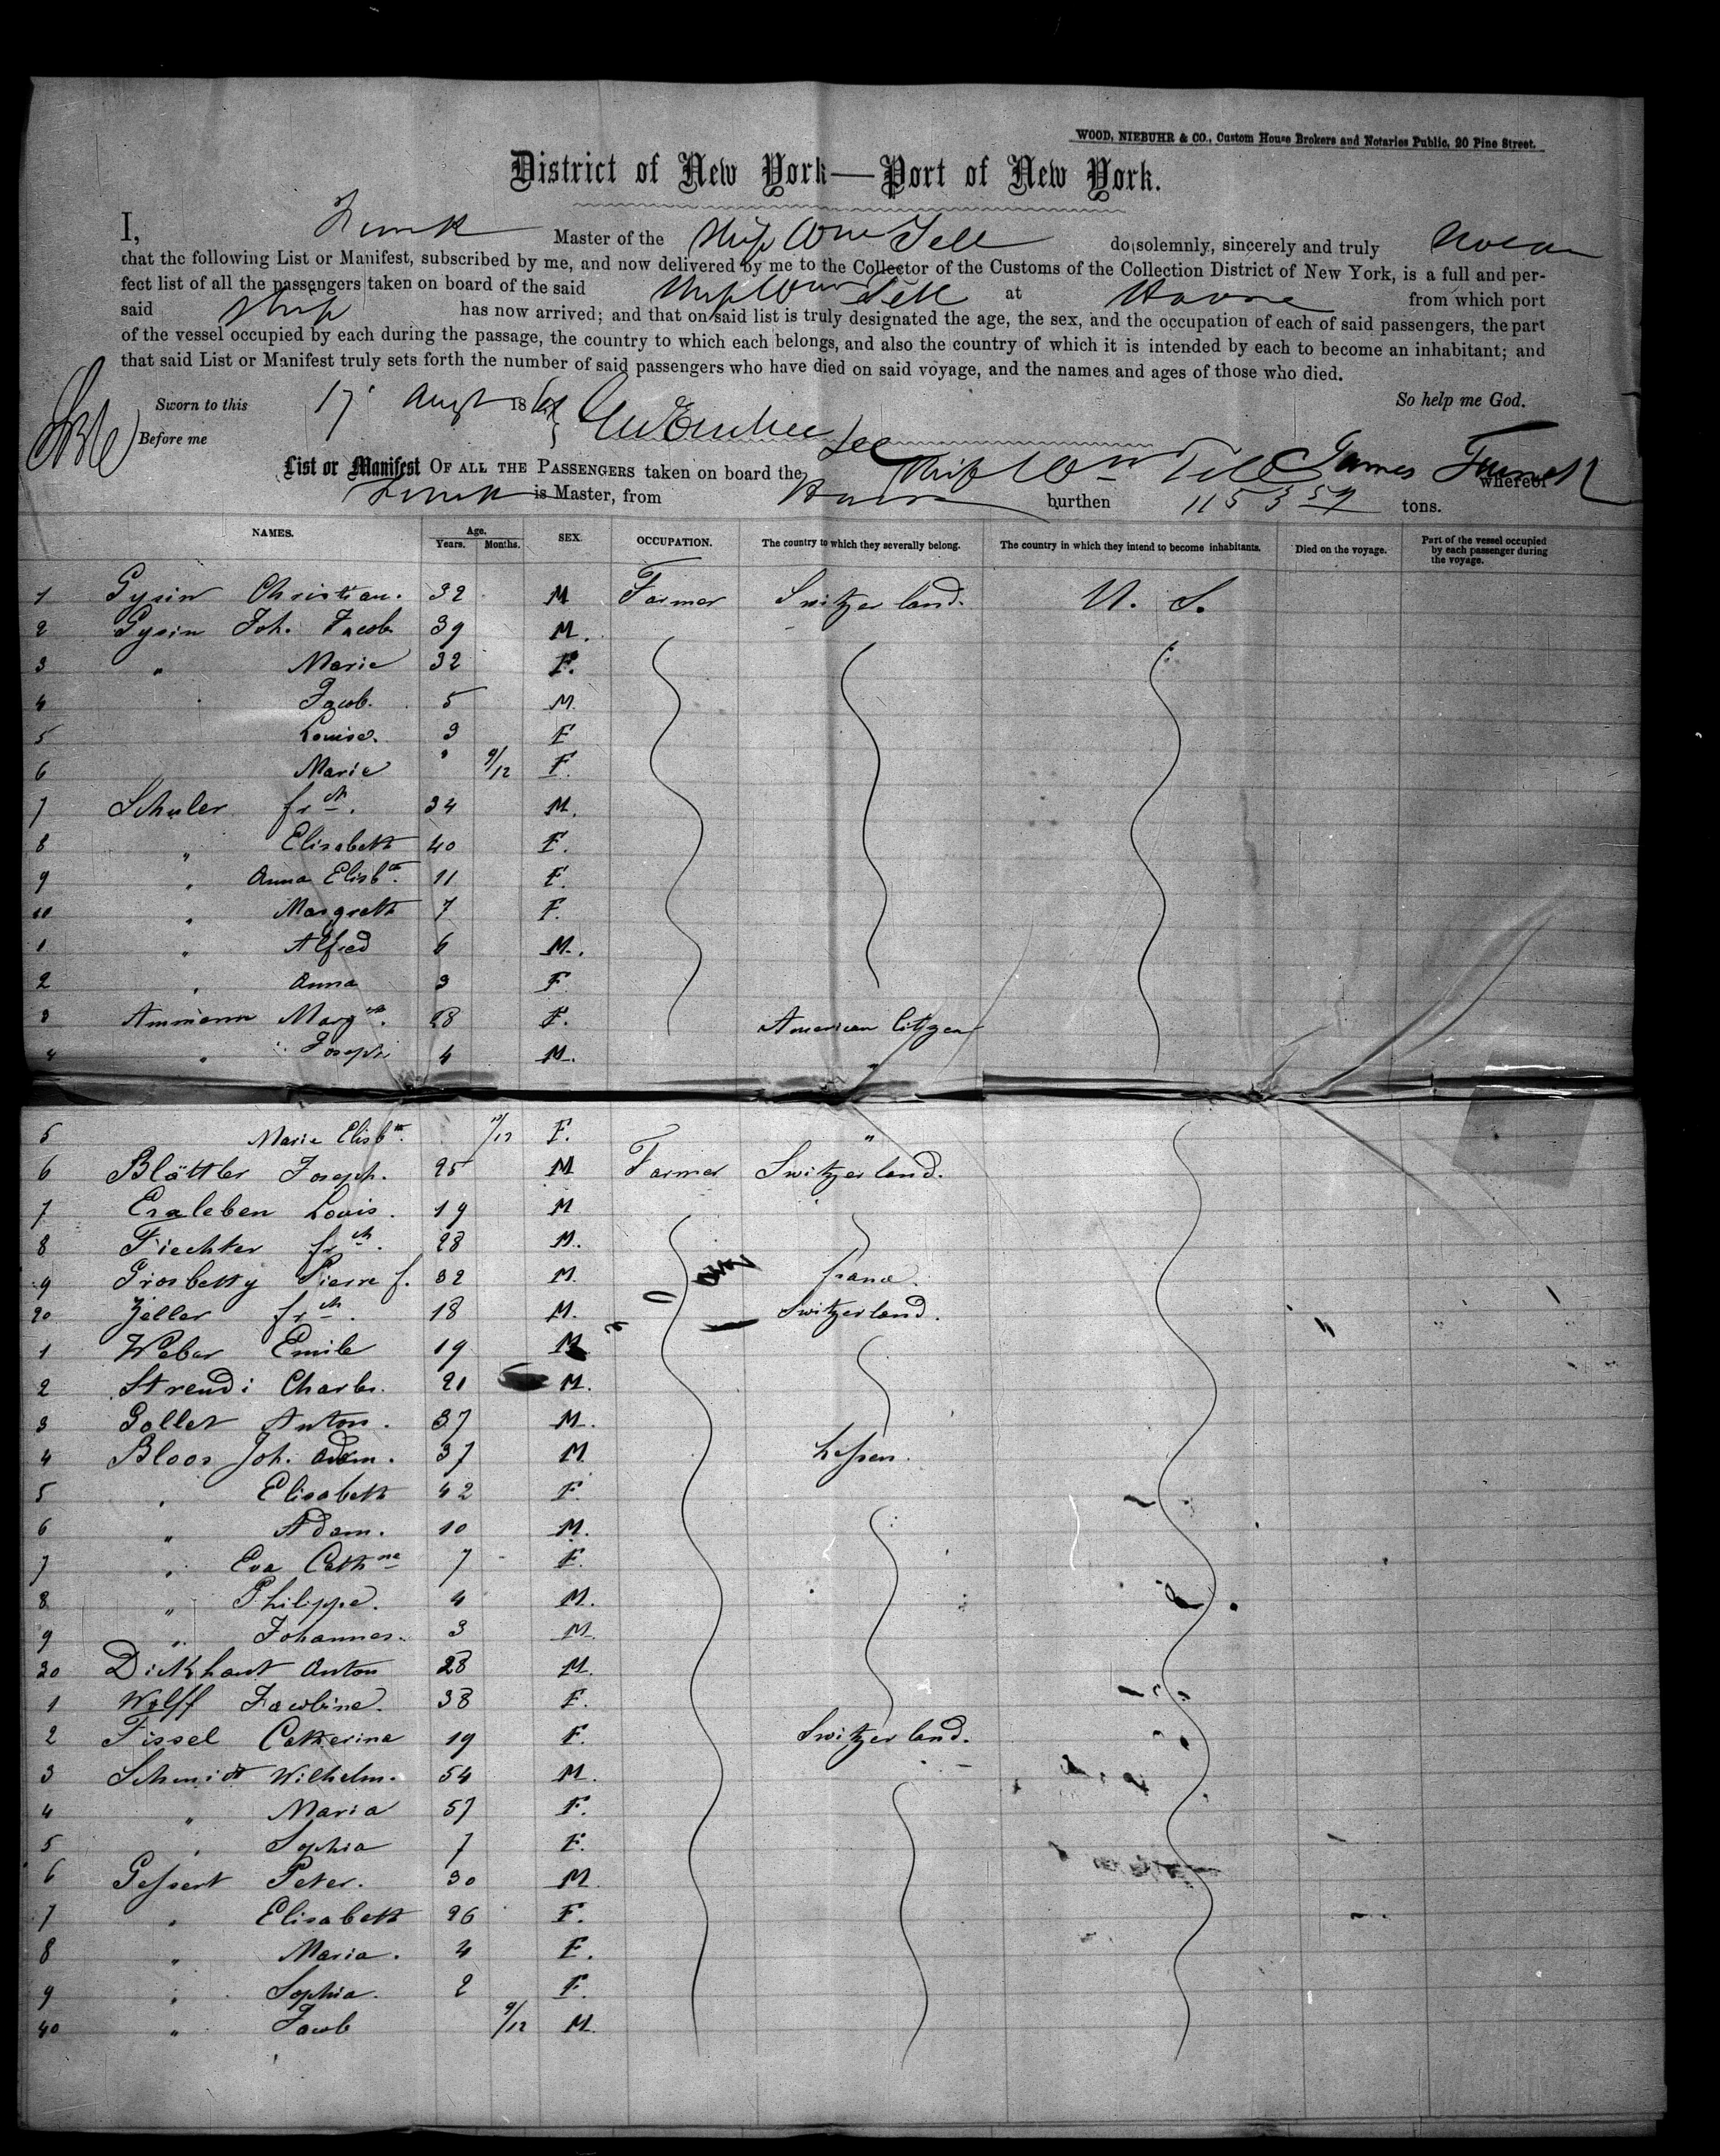 WOOD, NIEBUHR & CO., Custom House Brokers and Notaries Public, 20 Pine Street.
District of New York—Port of New York.
I, Funk Master of the Ship Wm Tell do solemnly, sincerely and truly swear
that the following List or Manifest, subscribed by me, and now delivered by me to the Collector of the Customs of the Collection District of New York, is a full and per-
fect list of all the passengers taken on board of the said Ship Wm Tell at Havre from which port
said ship has now arrived; and that on said list is truly designated the age, the sex, and the occupation of each of said passengers, the part
of the vessel occupied by each during the passage, the country to which each belongs, and also the country of which it is intended by each to become an inhabitant; and
that said List or Manifest truly sets forth the number of said passengers who have died on said voyage, and the names and ages of those who died.
Sworn to this 17 Augt 186 So help me God.
Before me
List or Manifest OF ALL THE PASSENGERS taken on board the Ship Wm Tell James Funk whereof
Funk is Master, from Havre burthen 1153 57 tons.
NAMES. Age. Years. Months. SEX. OCCUPATION. The country to which they severally belong. The country in which they intend to become inhabitants. Died on the voyage. Part of the vessel occupied by each passenger during the voyage.
1 Gysin Christian. 32 M Farmer Switzerland. U. S.
2 Gysin Joh. Jacob 39 M.
3 " Marie 32 F.
4 Jacob. 5 M.
5 Louise. 3 F
6 Marie " 9/12 F.
7 Schuler frch. 34 M.
8 " Elisabeth 40 F.
9 " Anna Elisbth. 11 F.
10 " Margreth 7 F.
1 " Alfred 6 M.
2 " Anna 3 F
3 Ammann Margth. 28 F. American Citizen
4 " Joseph 4 M. "
5 Marie Elisbth. /12 F. "
6 Blättler Joseph. 25 M Farmer Switzerland.
7 Erxleben Louis. 19 M
8 Fiechter frch. 28 M.
9 Grosbetty Pierre f. 32 M. france.
20 Zeller frch. 18 M. Switzerland.
1 Weber Emile 19 M
2 Streudi Charles. 21 M.
3 Gollet Anton. 37 M.
4 Bloos Joh. Adam. 37 M Hessen.
5 " Elisabeth 42 F.
6 " Adam. 10 M.
7 " Eva Cathne 7 F.
8 " Philippe. 4 M.
9 " Johannes. 3 M.
30 Dickhaut Anton 28 M.
1 Wolff Jacobine. 38 F.
2 Fissel Catherina 19 F. Switzerland.
3 Schmidt Wilhelm. 54 M.
4 " Maria 57 F.
5 " Sophia 7 F.
6 Gessert Peter. 30 M.
7 " Elisabeth 26 F.
8 " Maria. 4 F.
9 " Sophia. 2 F.
40 " Jacob 9/12 M.